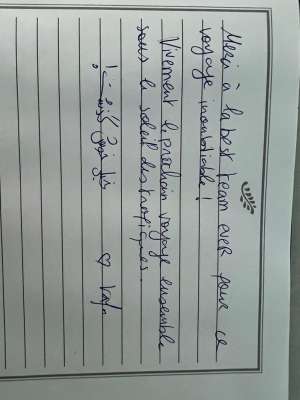 Merci à la best team ever pour ce
voyage inoubliable !
Vivement le prochain voyage ensemble
sous le soleil des tropiques.
♡